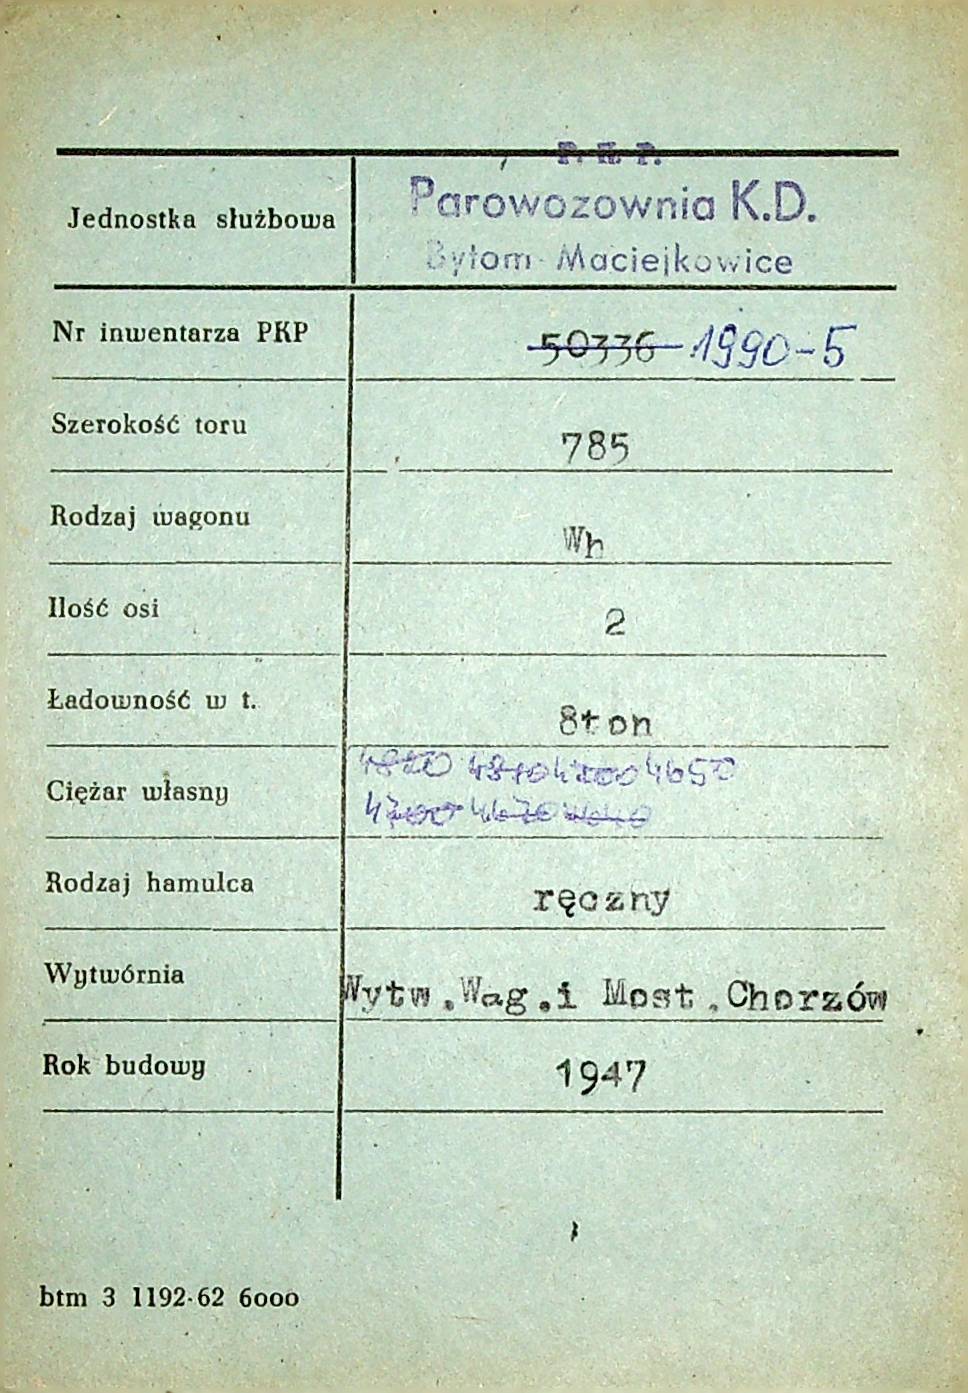 P. K. P.
Parowozownia K.D.
Jednostka służbowa
Bytom Maciejkowice
Nr inwentarza PKP 50336 1990-5
Szerokość toru 785
Rodzaj wagonu Wh
Ilość osi 2
Ładowność w t. 8ton
4820 4810 4650
Ciężar własny
4700 4670
Rodzaj hamulca ręczny
Wytwórnia Wytw.Wag.i Most.Chorzów
Rok budowy 1947
btm 3 1192-62 6000